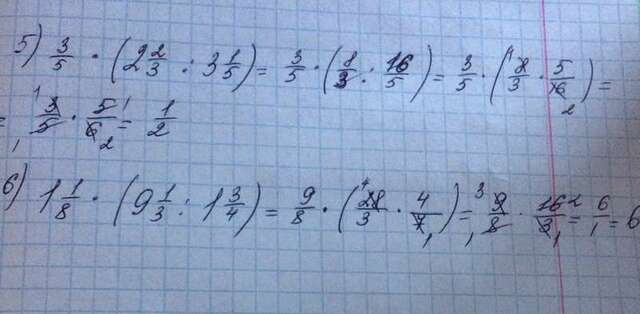 5) 3/5 · (2 2/3 : 3 1/5) = 3/5 · (8/3 : 16/5) = 3/5 · (8/3 · 5/16) =
= 3/5 · 5/6 = 1/2
6) 1 1/8 · (9 1/3 : 1 3/4) = 9/8 · (28/3 · 4/7) = 9/8 · 16/3 = 6/1 = 6